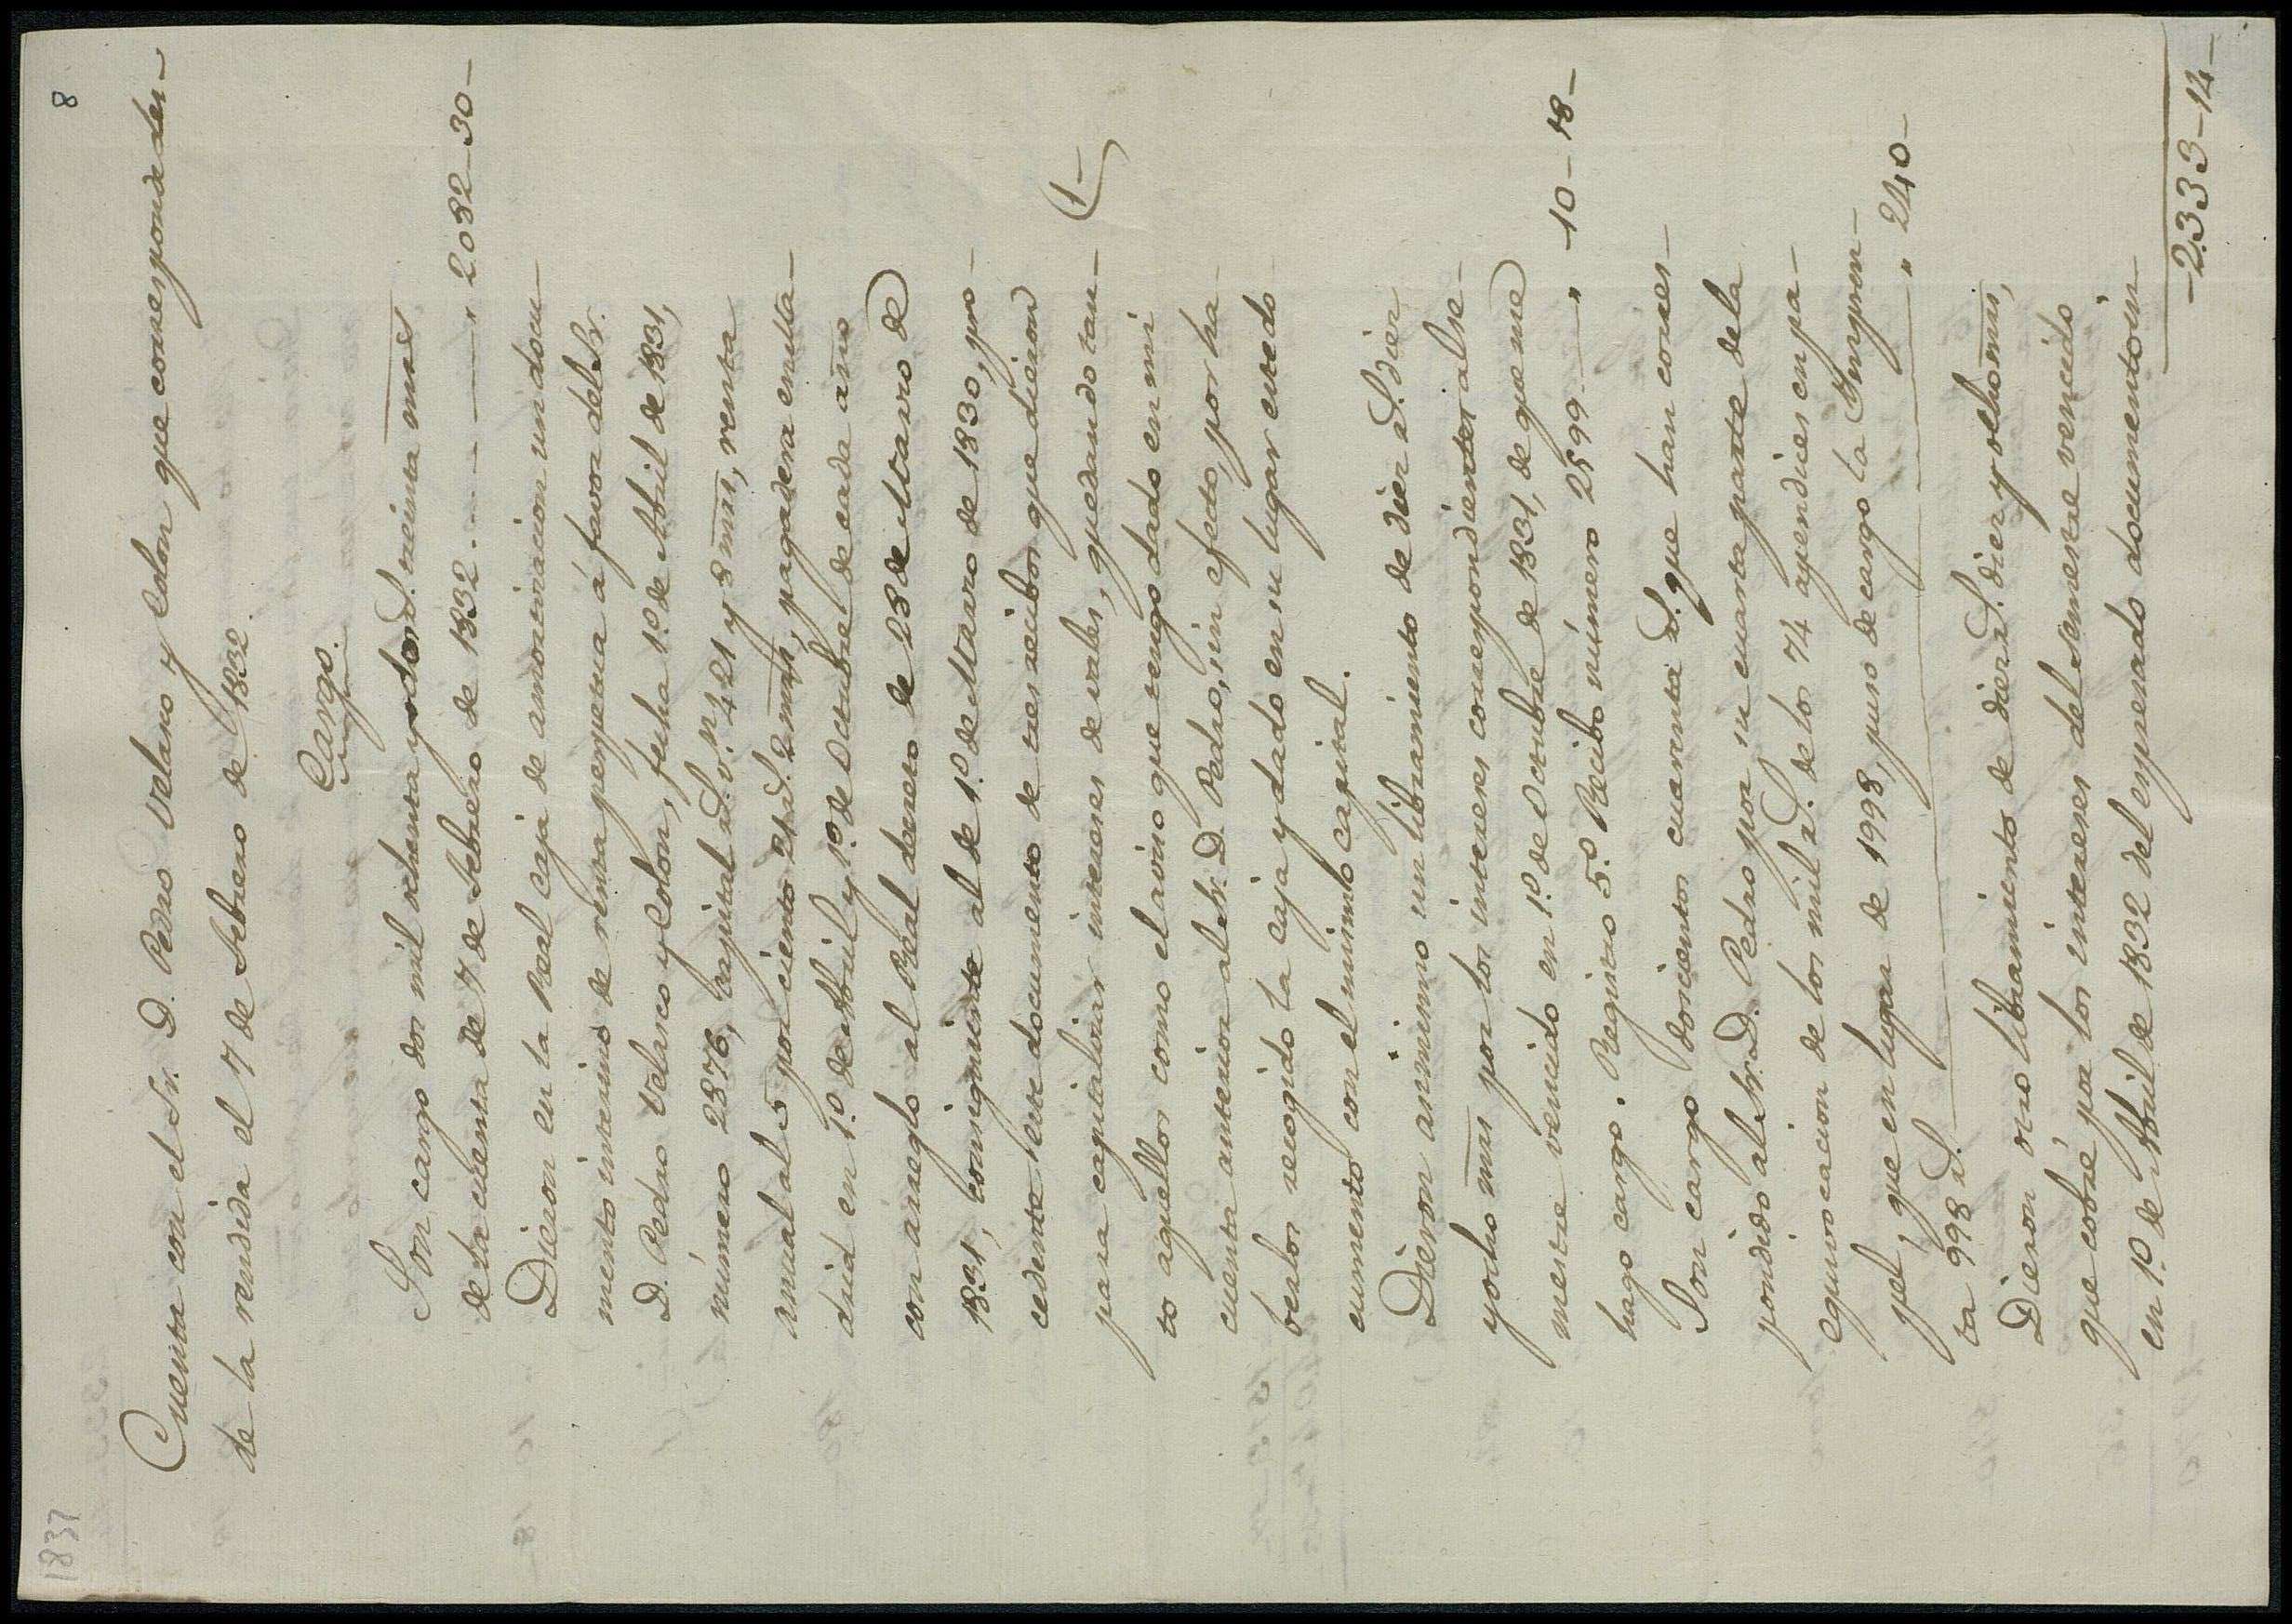 1837
8
Cuenta con el Sr. D. Pedro Velasco y Colon que corresponde des-
de la rendida el 7 de Febrero de 1832.
Cargo.
Son cargo dos mil ochenta y dos rS. treinta mrs
de la cuenta de 7 de Febrero de 1832. - - - - " 2082-30-
Dieron en la Real Caja de amortizacion un docu-
mento interino de renta perpetua á favor del Sr.
D. Pedro Velasco y Colon, fecha 1º. de Abril de 1831,
número 2876, Capital rS. vn. 421 y 8 mrs, renta
anual al 5 por ciento 21 rS. 2 mrs, pagadera en Ma-
drid en 1º. de Abril y 1º. de Octubre de cada año
con arreglo al Real decreto de 28 de Marzo de
1831, consiguiente al de 1º. de Marzo de 1830, pro-
cedente este documento de tres recibos que dieron
para capitalizar intereses de vales, quedando tan-
to aquellos como el aviso que tengo dado en mi
cuenta anterior al Sr. D. Pedro, sin efecto, por ha-
berlos recogido la caja y dado en su lugar este do-
cumento con el mismo capital.
1-
Dieron asimismo un libramiento de diez rS. diez
y ocho mrs por los intereses correspondientes al se-
mestre vencido en 1º. de Octubre de 1831, de que me
hago cargo. Registro 5º. Recibo número 2599. — " -10-18-
Son cargo doscientos cuarenta rS. que han corres-
pondido al Sr. D. Pedro por su cuarta parte de la
equivocacion de los mil rS. de los 74 apendices en pa-
pel, que en lugar de 1998, puso de cargo la Impren-
ta 998 rS. — " 240-
Dieron otro libramiento de diez rS. diez y ocho mrs,
que cobré por los intereses del semestre vencido
en 1º. de Abril de 1832 del espresado documento in-
-2333-14-